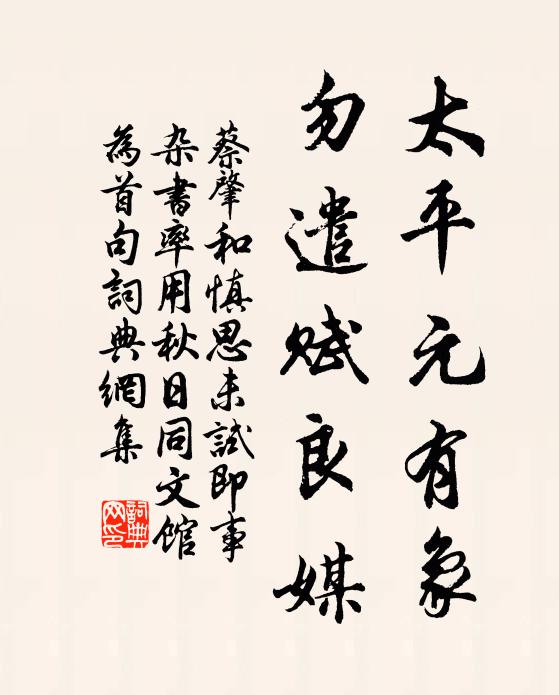 太平元有象
勿遣赋良媒
蔡肇和慎思未試即事
杂書率用秋日同文馆
為首句詞典網集
詞典
网印